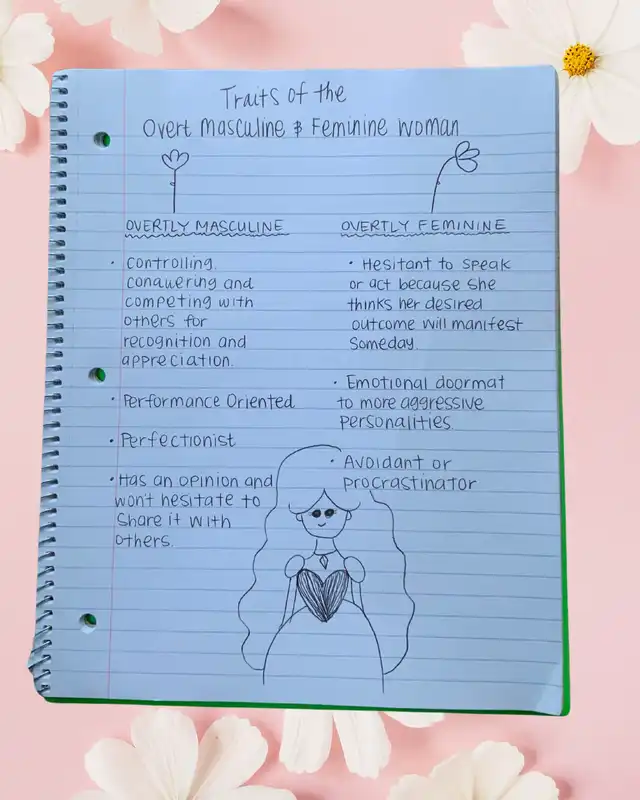 Traits of the
Overt Masculine & Feminine Woman
OVERTLY MASCULINE
• Controlling,
conquering and
competing with
others for
recognition and
appreciation.
• Performance Oriented
• Perfectionist
• Has an opinion and
won't hesitate to
share it with
others.
OVERTLY FEMININE
• Hesitant to speak
or act because she
thinks her desired
outcome will manifest
someday.
• Emotional doormat
to more aggressive
personalities
• Avoidant or
procrastinator